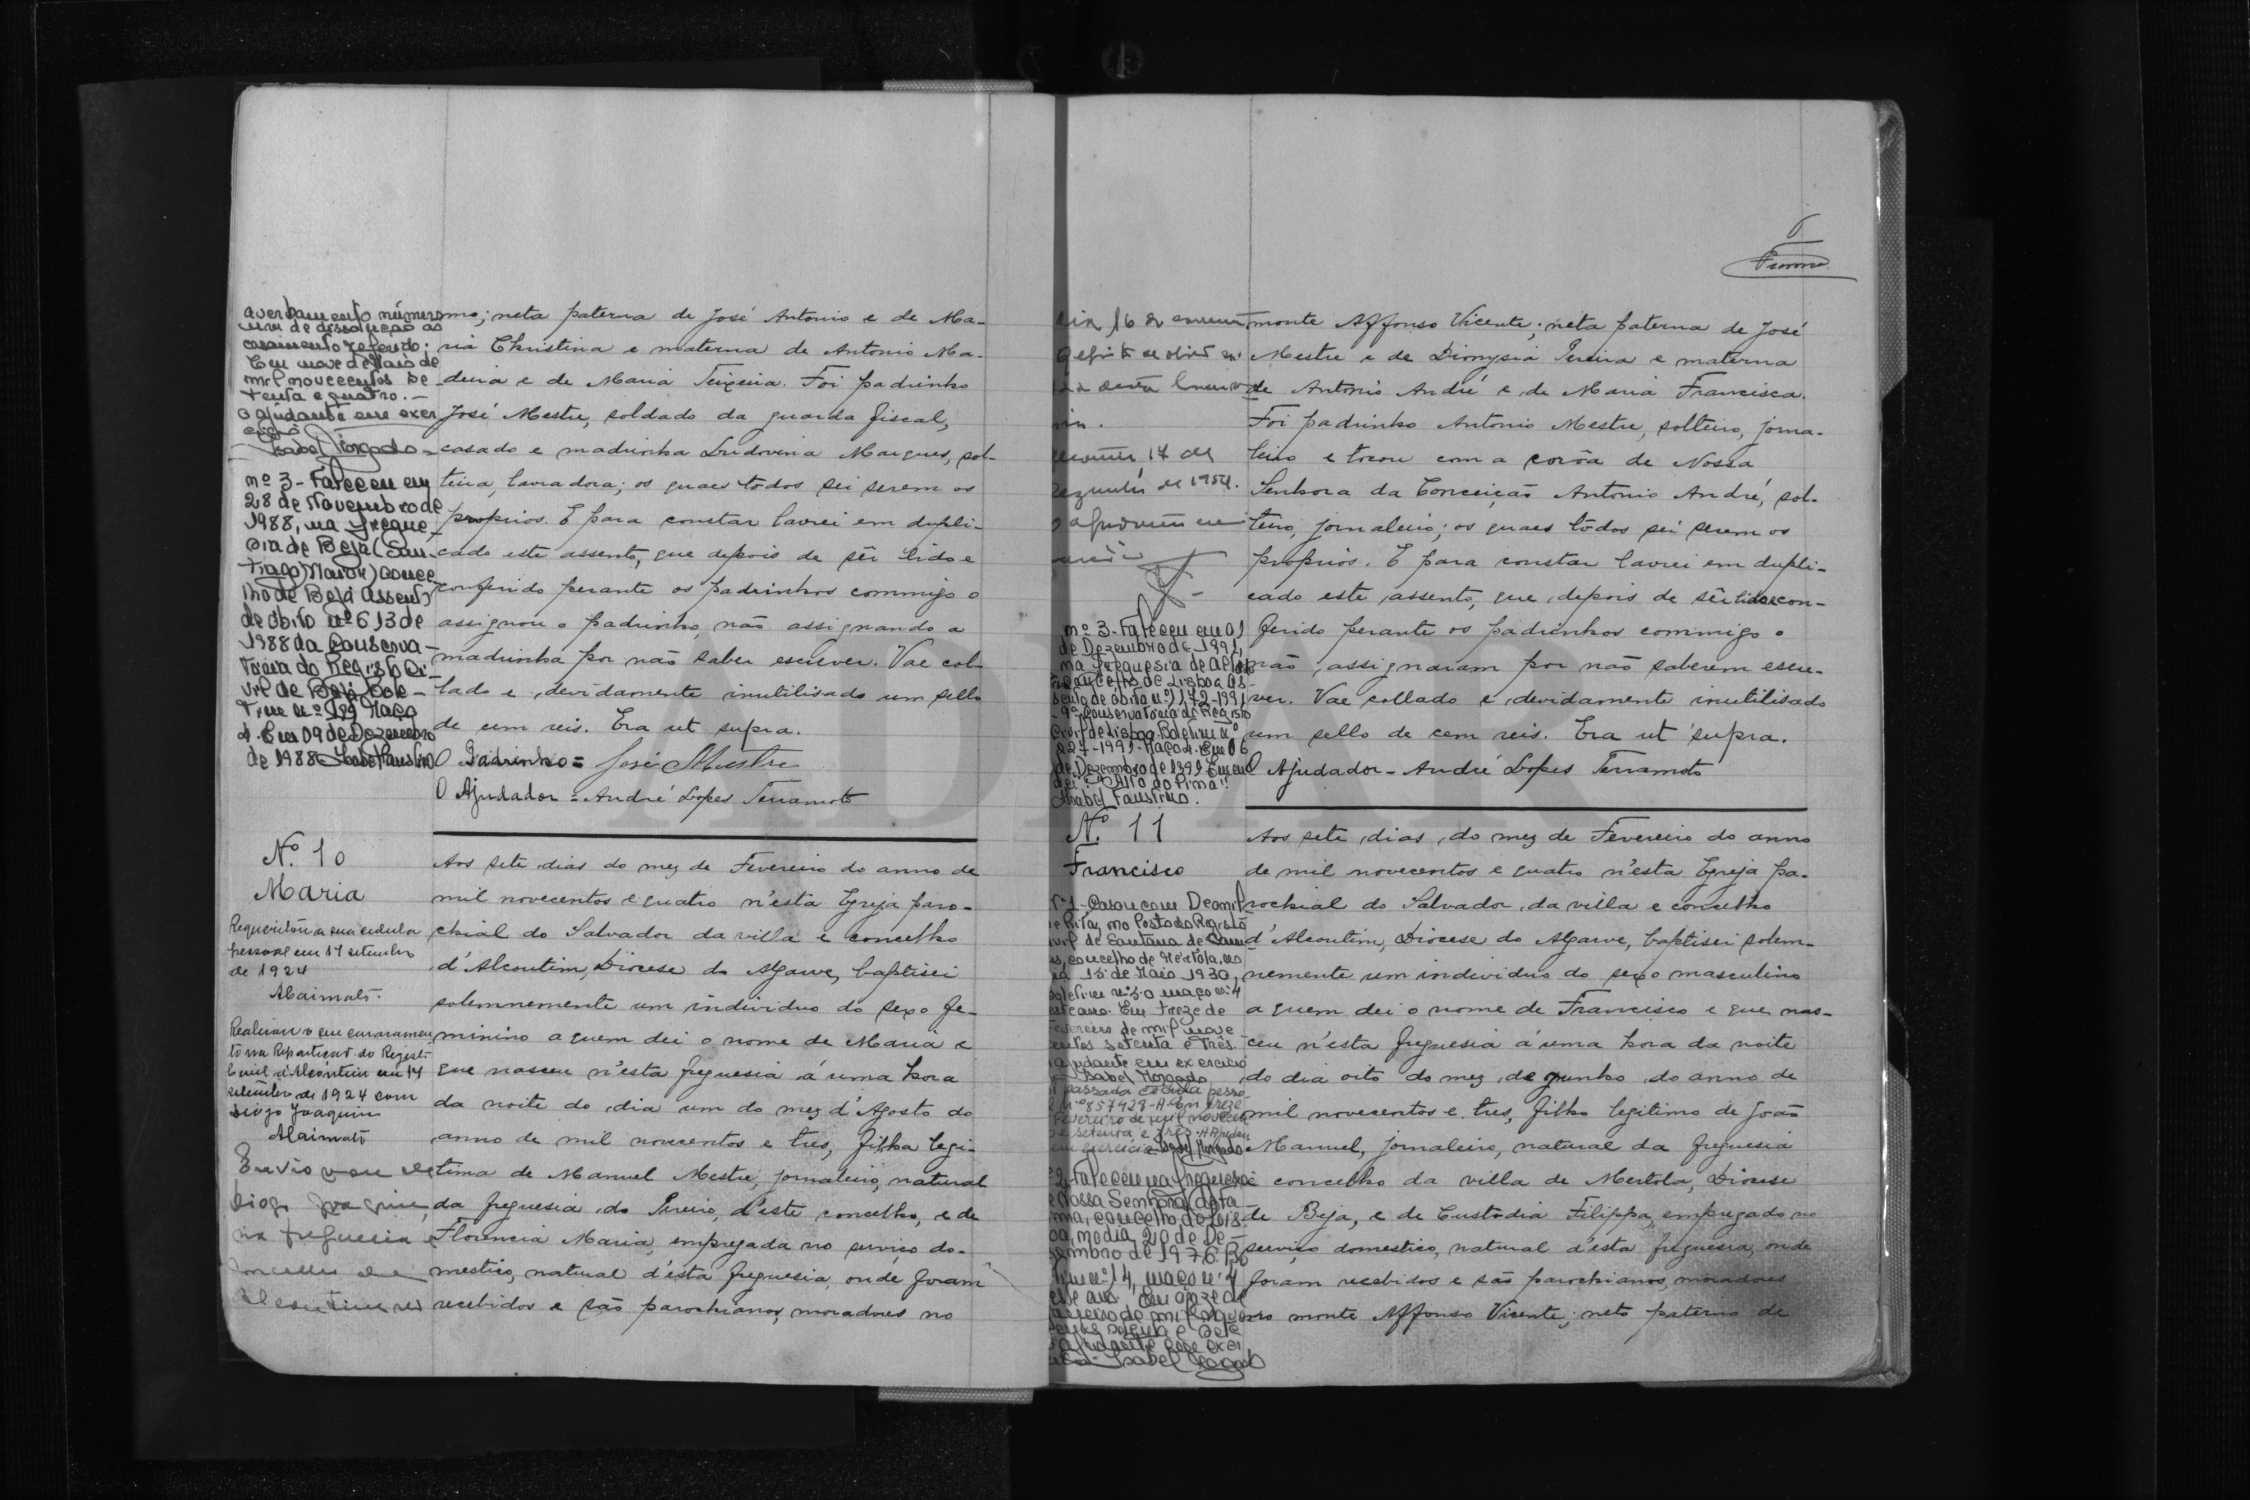 averbamento número
um de dissolução do
casamento referido.
Em nove de Maio de
mil novecentos se-
tenta e quatro. -
O ajudante em exer
cicio
Isabel Morgado
nº 3 - Faleceu em
28 de Novembro de
1988, na fregue
sia de Beja (San-
tiago Maior) conce
lho de Beja Assento
de óbito nº 613 de
1988 da Conserva-
tória do Registo Ci-
vil de Beja Bole-
tim nº 199 Maço
4. Em 09 de Dezembro
de 1988 Isabel Faustino
mo; neta paterna de José Antonio e de Ma-
ria Christina e materna de Antonio Ma-
deira e de Maria Teixeira. Foi padrinho
José Mestre, soldado da guarda fiscal,
casado e madrinha Ludovina Marques, sol-
teira, lavradora; os quaes todos sei serem os
proprios. E para constar lavrei em dupli-
cado este assento, que depois de sêr lido e
conferido perante os padrinhos commigo o
assignou o padrinho, não assignando a
madrinha por não saber escrever. Vae col-
lado e devidamente inutilisado um sello
de cem reis. Era ut supra.
O Padrinho = José Mestre
O Ajudador = André Lopes Terramoto
Nº 10
Maria
Requisitou a sua cedula
pessoal em 17 setembro
de 1924
Realisou o seu casamen
to na Repartição do Regist.
Civil d'Alcoutim em 14
setembro de 1924 com
Diogo Joaquim
Enviovou de
Diogo Joaquim,
na freguesia
concelho de
Alcoutim
Aos sete dias do mez de Fevereiro do anno de
mil novecentos e quatro n'esta Egreja paro-
chial do Salvador da villa e concelho
d'Alcoutim, Diocese do Algarve, baptisei
solemnemente um individuo do sexo fe-
minino a quem dei o nome de Maria e
que nasceu n'esta freguesia á uma hora
da noite do dia um do mez d'Agosto do
anno de mil novecentos e tres, filha legi-
tima de Manuel Mestre, jornaleiro, natural
da freguesia do Pereiro, d'este concelho, e de
Florencia Maria, empregada no serviço do-
mestico, natural d'esta freguesia, onde foram
recebidos e são parochianos, moradores no
6
dia 16 de
17 de
Dezembro de 1954.
nº 3 - Faleceu em 01
de Dezembro de 1991,
na freguesia de
concelho de Lisboa As-
sento de óbito nº 1172-1991
- 9ª Conservatória do Registo
Civil de Lisboa Boletim nº
227-1991 - Maço 4. Em 06
de Dezembro de 1991
Isabel Faustino.
monte Affonso Vicente; neta paterna de José
Mestre e de Dionysia Pereira e materna
de Antonio André e de Maria Francisca.
Foi padrinho Antonio Mestre, solteiro, jorna-
leiro e tocou com a corôa de Nossa
Senhora da Conceição Antonio André, sol-
teiro, jornaleiro; os quaes todos sei serem os
proprios. E para constar lavrei em dupli-
cado este assento, que depois de sêr lido e con-
ferido perante os padrinhos commigo o
não assignaram por não saberem escre-
ver. Vae collado e devidamente inutilisado
um sello de cem reis. Era ut supra.
O Ajudador - André Lopes Terramoto
Nº 11
Francisco
nº 1 - Casou com Deomil
de Rita, no Posto do Registo
civil de Santana de Cam
bas, concelho de Mértola, no
dia 15 de Maio 1930,
boletim nº 50 maço nº 4
Em treze de
Fevereiro de mil nove
centos setenta e três.
ajudante em exercicio
Isabel Morgado
passada cédula pesso
nº 857428-A Em treze
Fevereiro de mil novecen
setenta e três. A Ajudan
em exercicio Isabel Morgado
2 - Faleceu na freguesia
de Nossa Senhora de Fá
tima, concelho de Lis-
boa, no dia 20 de De-
zembro de 1976. Bo
letim nº 14, maço nº 4
Em onze de
Janeiro de mil nove
centos setenta e sete
ajudante em exer
Isabel Morgado
Aos sete dias do mez de Fevereiro do anno
de mil novecentos e quatro n'esta Egreja pa-
rochial do Salvador da villa e concelho
d'Alcoutim, Diocese do Algarve, baptisei solem-
nemente um individuo do sexo masculino
a quem dei o nome de Francisco e que nas-
ceu n'esta freguesia á uma hora da noite
do dia oito do mez de junho do anno de
mil novecentos e tres, filho legitimo de João
Manuel, jornaleiro, natural da freguesia
e concelho da villa de Mertola, Diocese
de Beja, e de Custodia Filippa, empregada no
serviço domestico, natural d'esta freguesia, onde
foram recebidos e são parochianos, moradores
no monte Affonso Vicente; neto paterno de